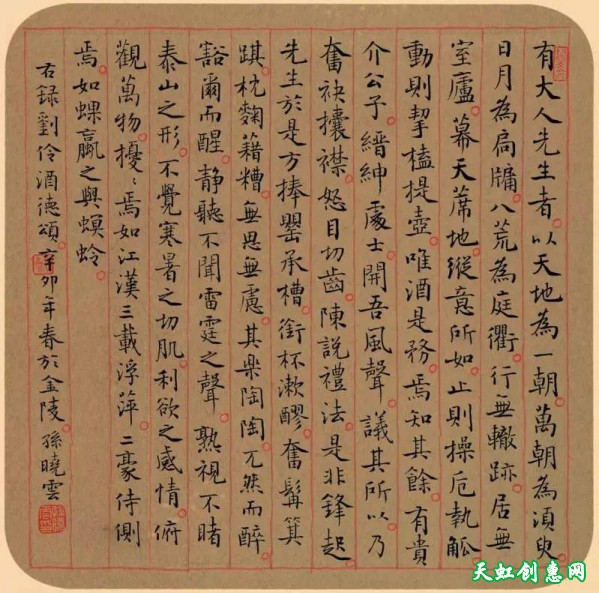 有大人先生者以天地為一朝萬朝為須臾
日月為扃牖八荒為庭衢行無轍跡居無
室廬幕天蓆地縱意所如止則操卮執觚
動則挈榼提壺唯酒是務焉知其餘有貴
介公子縉紳處士開吾風聲議其所以乃
奮袂攘襟怒目切齒陳說禮法是非鋒起
先生於是方捧罌承槽銜杯漱醪奮髯箕
踑枕麴藉糟無思無慮其樂陶陶兀然而醉
豁爾而醒靜聽不聞雷霆之聲熟視不睹
泰山之形不覺寒暑之切肌利欲之感情俯
觀萬物擾〻焉如江漢三載浮萍二豪侍側
焉如蜾蠃之與螟蛉
右錄劉伶酒德頌辛卯年春於金陵孫曉雲
天虹创惠网